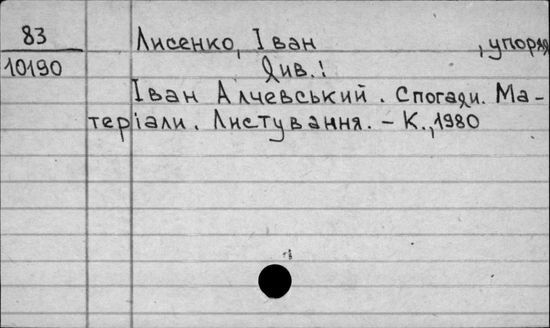 83 Лисенко, Іван , упоряд
10190 Див.:
Іван Алчевський. Спогади. Ма-
теріали. Листування. – К., 1980